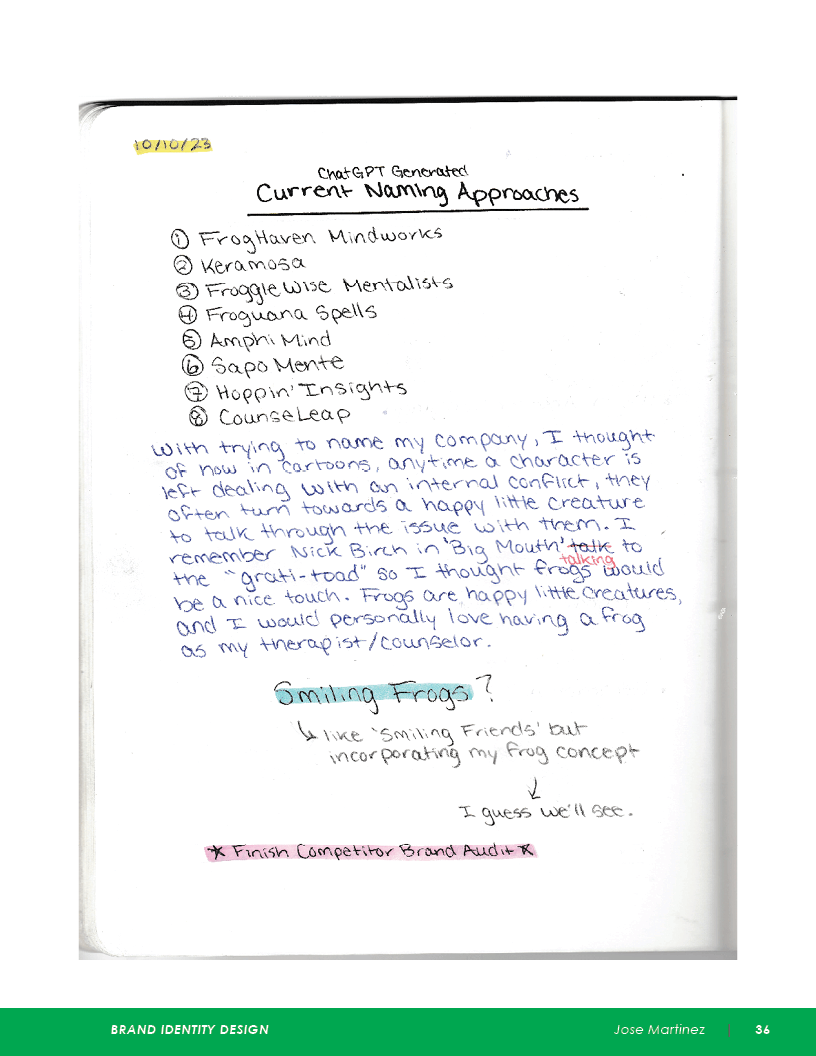 10/10/23
ChatGPT Generated
Current Naming Approaches
① FrogHaven Mindworks
② Keramosa
③ FroggleWise Mentalists
④ Froguana Spells
⑤ Amphi Mind
⑥ Sapo Mente
⑦ Hoppin' Insights
⑧ CounseLeap
With trying to name my company, I thought
of how in cartoons, anytime a character is
left dealing with an internal conflict, they
often turn towards a happy little creature
to talk through the issue with them. I
remember Nick Birch in 'Big Mouth' talk to
talking
the "grati-toad" so I thought frogs would
be a nice touch. Frogs are happy little creatures,
and I would personally love having a frog
as my therapist/counselor.
Smiling Frogs?
↳ like 'Smiling Friends' but
incorporating my frog concept
↓
I guess we'll see.
* Finish Competitor Brand Audit *
BRAND IDENTITY DESIGN
Jose Martinez | 36